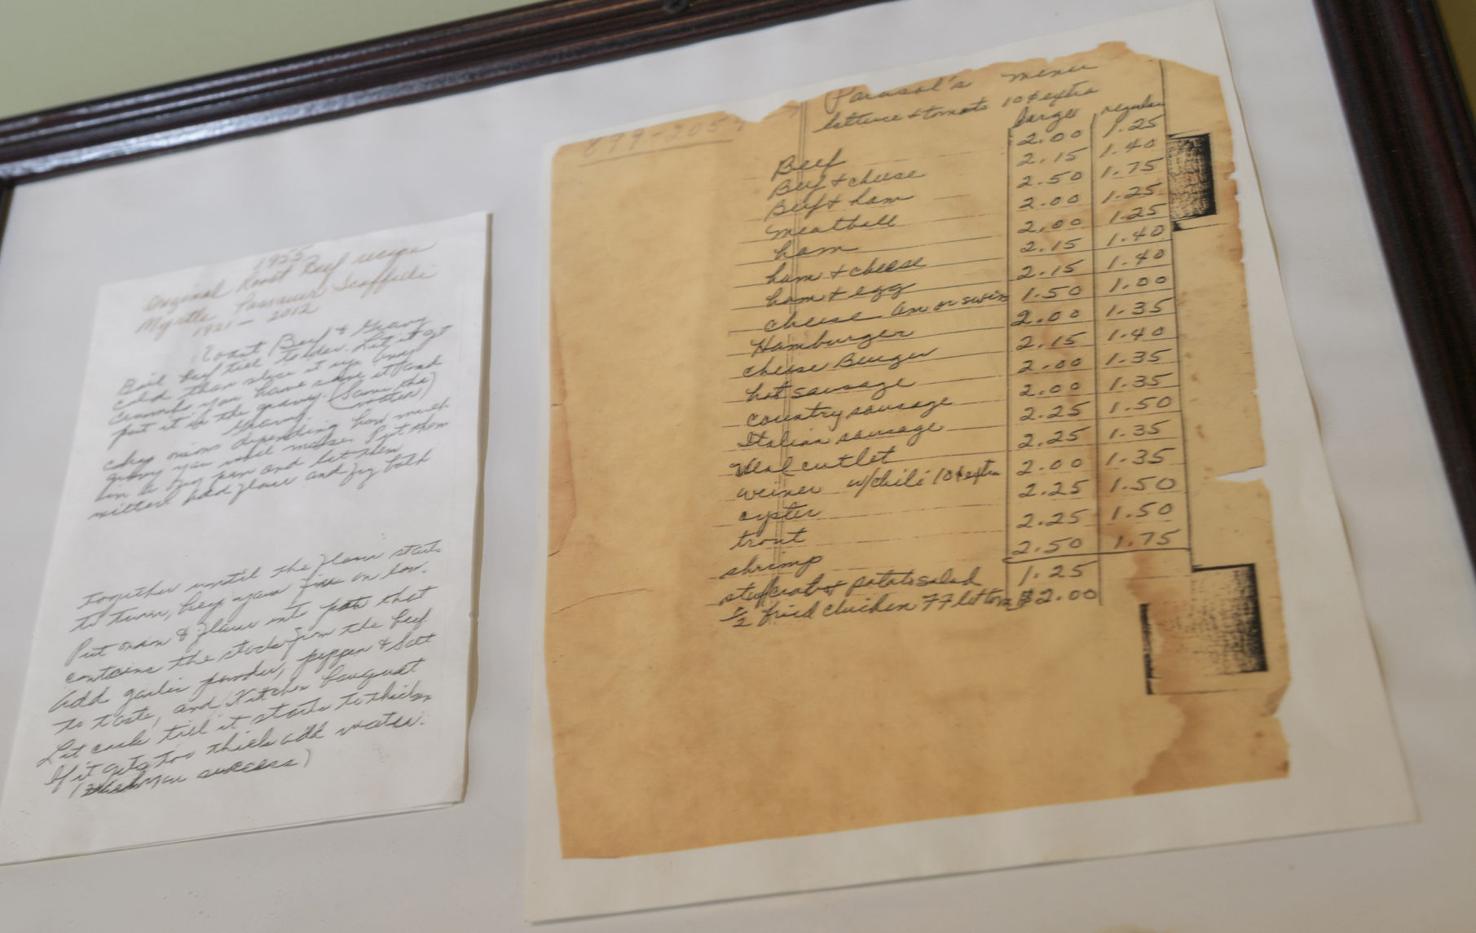 1952
Original Roast Beef recipe
Myrtle Passauer Scaffidi
1921 - 2012
Roast Beef & Gravy
Boil beef till tender. Let it get
cold then slice it up. Any
crumbs you have save it and
put it in the gravy. (Same the
Gravy water)
chop onions depending how much
gravy you will make. Put them
in a fry pan and let them
add flour and fry both
together until the flour starts
to turn, keep your fire on low.
Put onion & flour into pot that
contains the stock from the beef
add garlic powder, pepper & salt
to taste, and Kitchen Bouquet
Let cook till it starts to thicken
If it gets too thick add water.
(Wish you success)
899-205
Parasol's menu
lettuce & tomato 10¢ extra
large regular
Beef 2.00 1.25
Beef & cheese 2.15 1.40
Beef & ham 2.50 1.75
meatball 2.00 1.25
ham 2.00 1.25
ham & cheese 2.15 1.40
ham & egg 2.15 1.40
cheese Am or swiss 1.50 1.00
Hamburger 2.00 1.35
cheese Burger 2.15 1.40
hot sausage 2.00 1.35
country sausage 2.00 1.35
Italian sausage 2.25 1.50
Veal cutlet 2.25 1.35
weiner w/chili 10¢ extra 2.00 1.35
oyster 2.25 1.50
trout 2.25 1.50
shrimp 2.50 1.75
stuf crab & potato salad 1.25
1/2 fried chicken FF let tom $2.00